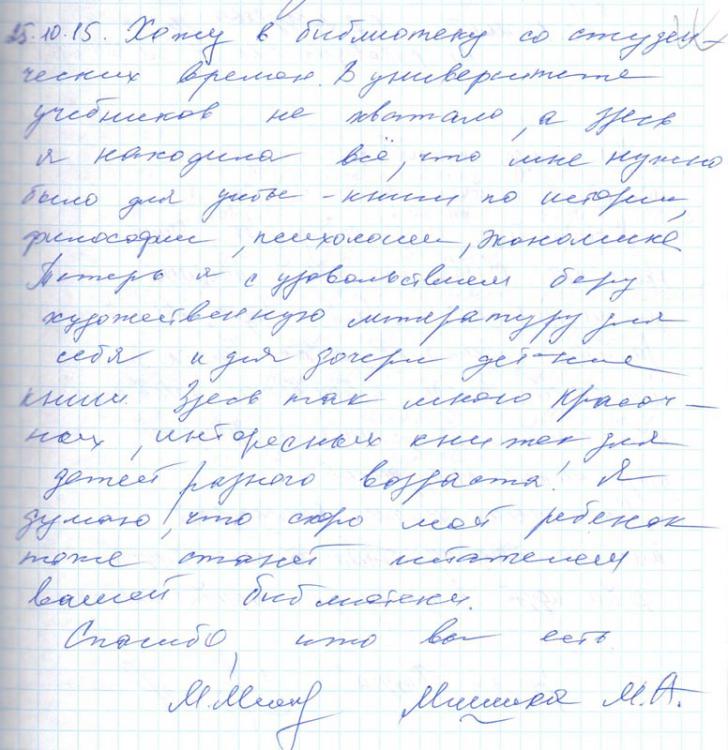 25.10.15. Хожу в библиотеку со студен-
ческих времен. В университете
учебников не хватало, а здесь
я находила всё, что мне нужно
было для учебы - книги по истории,
философии, психологии, экономике.
Теперь я с удовольствием беру
художественную литературу для
себя и для дочери детские
книги. Здесь так много красоч-
ных, интересных книжек для
детей разного возраста! Я
думаю, что скоро мой ребенок
тоже станет читателем
вашей библиотеки.
Спасибо, что вы есть.
М.А.